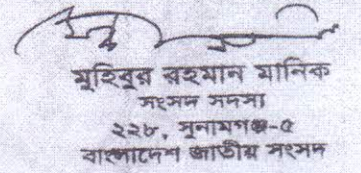 মুহিবুর রহমান মানিক
সংসদ সদস্য
২২৮, সুনামগঞ্জ-৫
বাংলাদেশ জাতীয় সংসদ